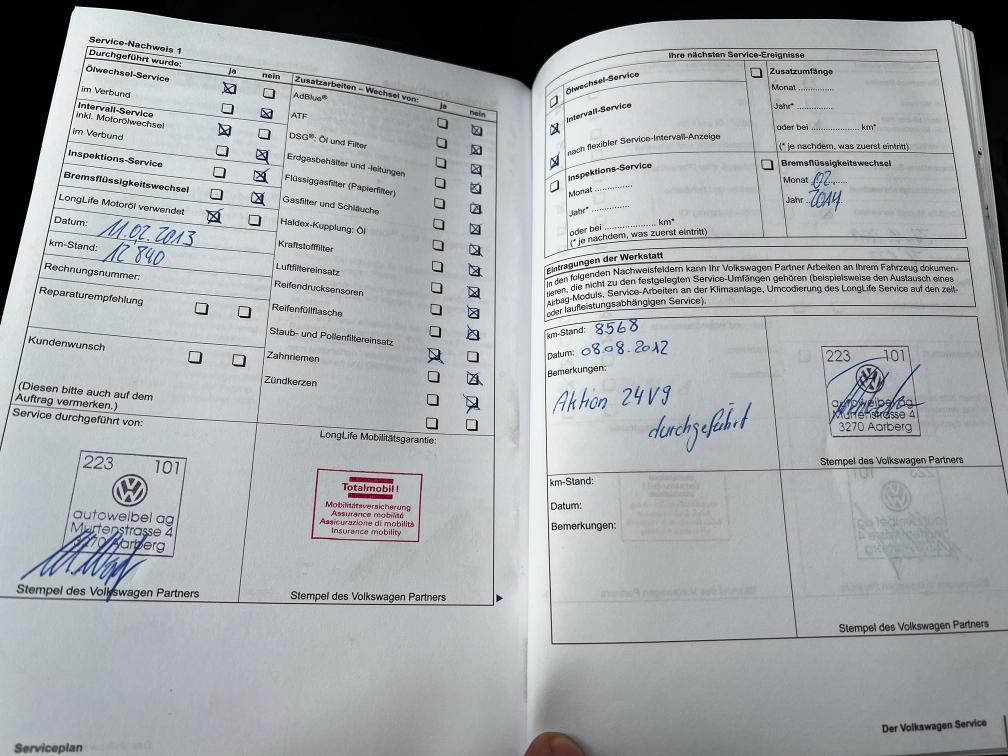 Service-Nachweis 1
Durchgeführt wurde: ja nein
Ölwechsel-Service
im Verbund
Intervall-Service
inkl. Motorölwechsel
im Verbund
Inspektions-Service
Bremsflüssigkeitswechsel
LongLife Motoröl verwendet
Datum: 11.02.2013
km-Stand: 12 840
Rechnungsnummer:
Reparaturempfehlung
Kundenwunsch
(Diesen bitte auch auf dem
Auftrag vermerken.)
Service durchgeführt von:
223 101
autoweibel ag
Murtenstrasse 4
3270 Aarberg
Stempel des Volkswagen Partners
Zusatzarbeiten – Wechsel von: ja nein
AdBlue®
ATF
DSG®: Öl und Filter
Erdgasbehälter und -leitungen
Flüssiggasfilter (Papierfilter)
Gasfilter und Schläuche
Haldex-Kupplung: Öl
Kraftstofffilter
Luftfiltereinsatz
Reifendrucksensoren
Reifenfüllflasche
Staub- und Pollenfiltereinsatz
Zahnriemen
Zündkerzen
LongLife Mobilitätsgarantie:
Totalmobil!
Mobilitätsversicherung
Assurance mobilité
Assicurazione di mobilità
Insurance mobility
Stempel des Volkswagen Partners
Serviceplan
Ihre nächsten Service-Ereignisse
Ölwechsel-Service
Intervall-Service
nach flexibler Service-Intervall-Anzeige
Inspektions-Service
Monat ............
Jahr* ............
oder bei ..................... km*
(* je nachdem, was zuerst eintritt)
Zusatzumfänge
Monat ............
Jahr* ............
oder bei ..................... km*
(* je nachdem, was zuerst eintritt)
Bremsflüssigkeitswechsel
Monat 02
Jahr 2014
Eintragungen der Werkstatt
In den folgenden Nachweisfeldern kann Ihr Volkswagen Partner Arbeiten an Ihrem Fahrzeug dokumen-
tieren, die nicht zu den festgelegten Service-Umfängen gehören (beispielsweise den Austausch eines
Airbag-Moduls, Service-Arbeiten an der Klimaanlage, Umcodierung des LongLife Service auf den zeit-
oder laufleistungsabhängigen Service).
km-Stand: 8568
Datum: 08.08.2012
Bemerkungen:
Aktion 24V9
durchgeführt
223 101
autoweibel ag
Murtenstrasse 4
3270 Aarberg
Stempel des Volkswagen Partners
km-Stand:
Datum:
Bemerkungen:
Stempel des Volkswagen Partners
Der Volkswagen Service